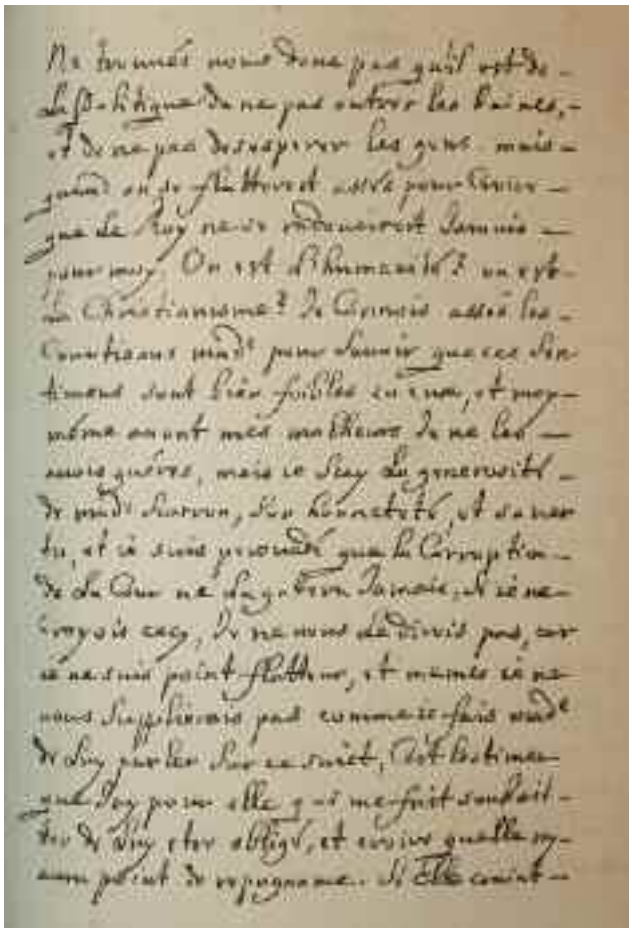 Ne trouvés vous donc pas qu'il est de
La Politique de ne pas outrer les haines,
et de ne pas desesperer les gens. mais
quand on se flatteroit assés pour croire
que Le Roy ne se radouciroit Jamais
pour moy, Ou est L'humanité? ou est
Le Christianisme? Je Connois assés les
Courtisans mad^e pour sçavoir que ces Sen
timens sont bien foibles en eux, et moy
même avant mes malheurs Je ne les
avois guéres, mais ie sçay La generosité
de mad^e Scarron, son honneteté, et sa ver
tu, et ie suis persuadé que la Corruption
de La Cour ne La gastera Jamais, si ie ne
croyois cecy, Je ne vous Le dirois pas, car
ie ne suis point flatteur, et memes ie ne
vous Supplierois pas comme ie fais mad^e
de Luy parler Sur ce suiet, C'est l'estime
que J'ay pour elle qui me fait souhait
ter de luy etre obligé, et croire quelle ny
aura point de repugnance. Si Elle craint